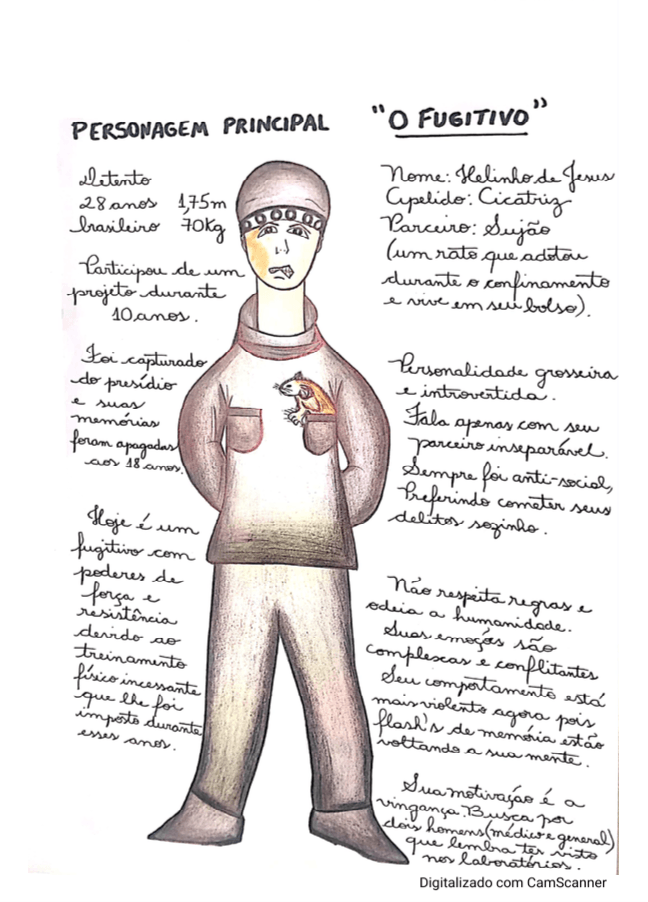 PERSONAGEM PRINCIPAL
"O FUGITIVO"
Detento
28 anos 1,75m
brasileiro 70kg
Participou de um
projeto durante
10 anos.
Foi capturado
do presídio
e suas
memórias
foram apagadas
aos 18 anos.
Hoje é um
fugitivo com
poderes de
força e
resistência
devido ao
treinamento
físico incessante
que lhe foi
imposto durante
esses anos.
Nome: Helinho de Jesus
Apelido: Cicatriz
Parceiro: Sujão
(um rato que adotou
durante o confinamento
e vive em seu bolso).
Personalidade grosseira
e introvertida.
Fala apenas com seu
parceiro inseparável.
Sempre foi anti-social,
Preferindo cometer seus
delitos sozinho.
Não respeita regras e
odeia a humanidade.
Suas emoções são
complexas e conflitantes
Seu comportamento está
mais violento agora pois
flash's de memória estão
voltando a sua mente.
Sua motivação é a
vingança. Busca por
dois homens (médico e general)
que lembra ter visto
nos laboratórios.
Digitalizado com CamScanner